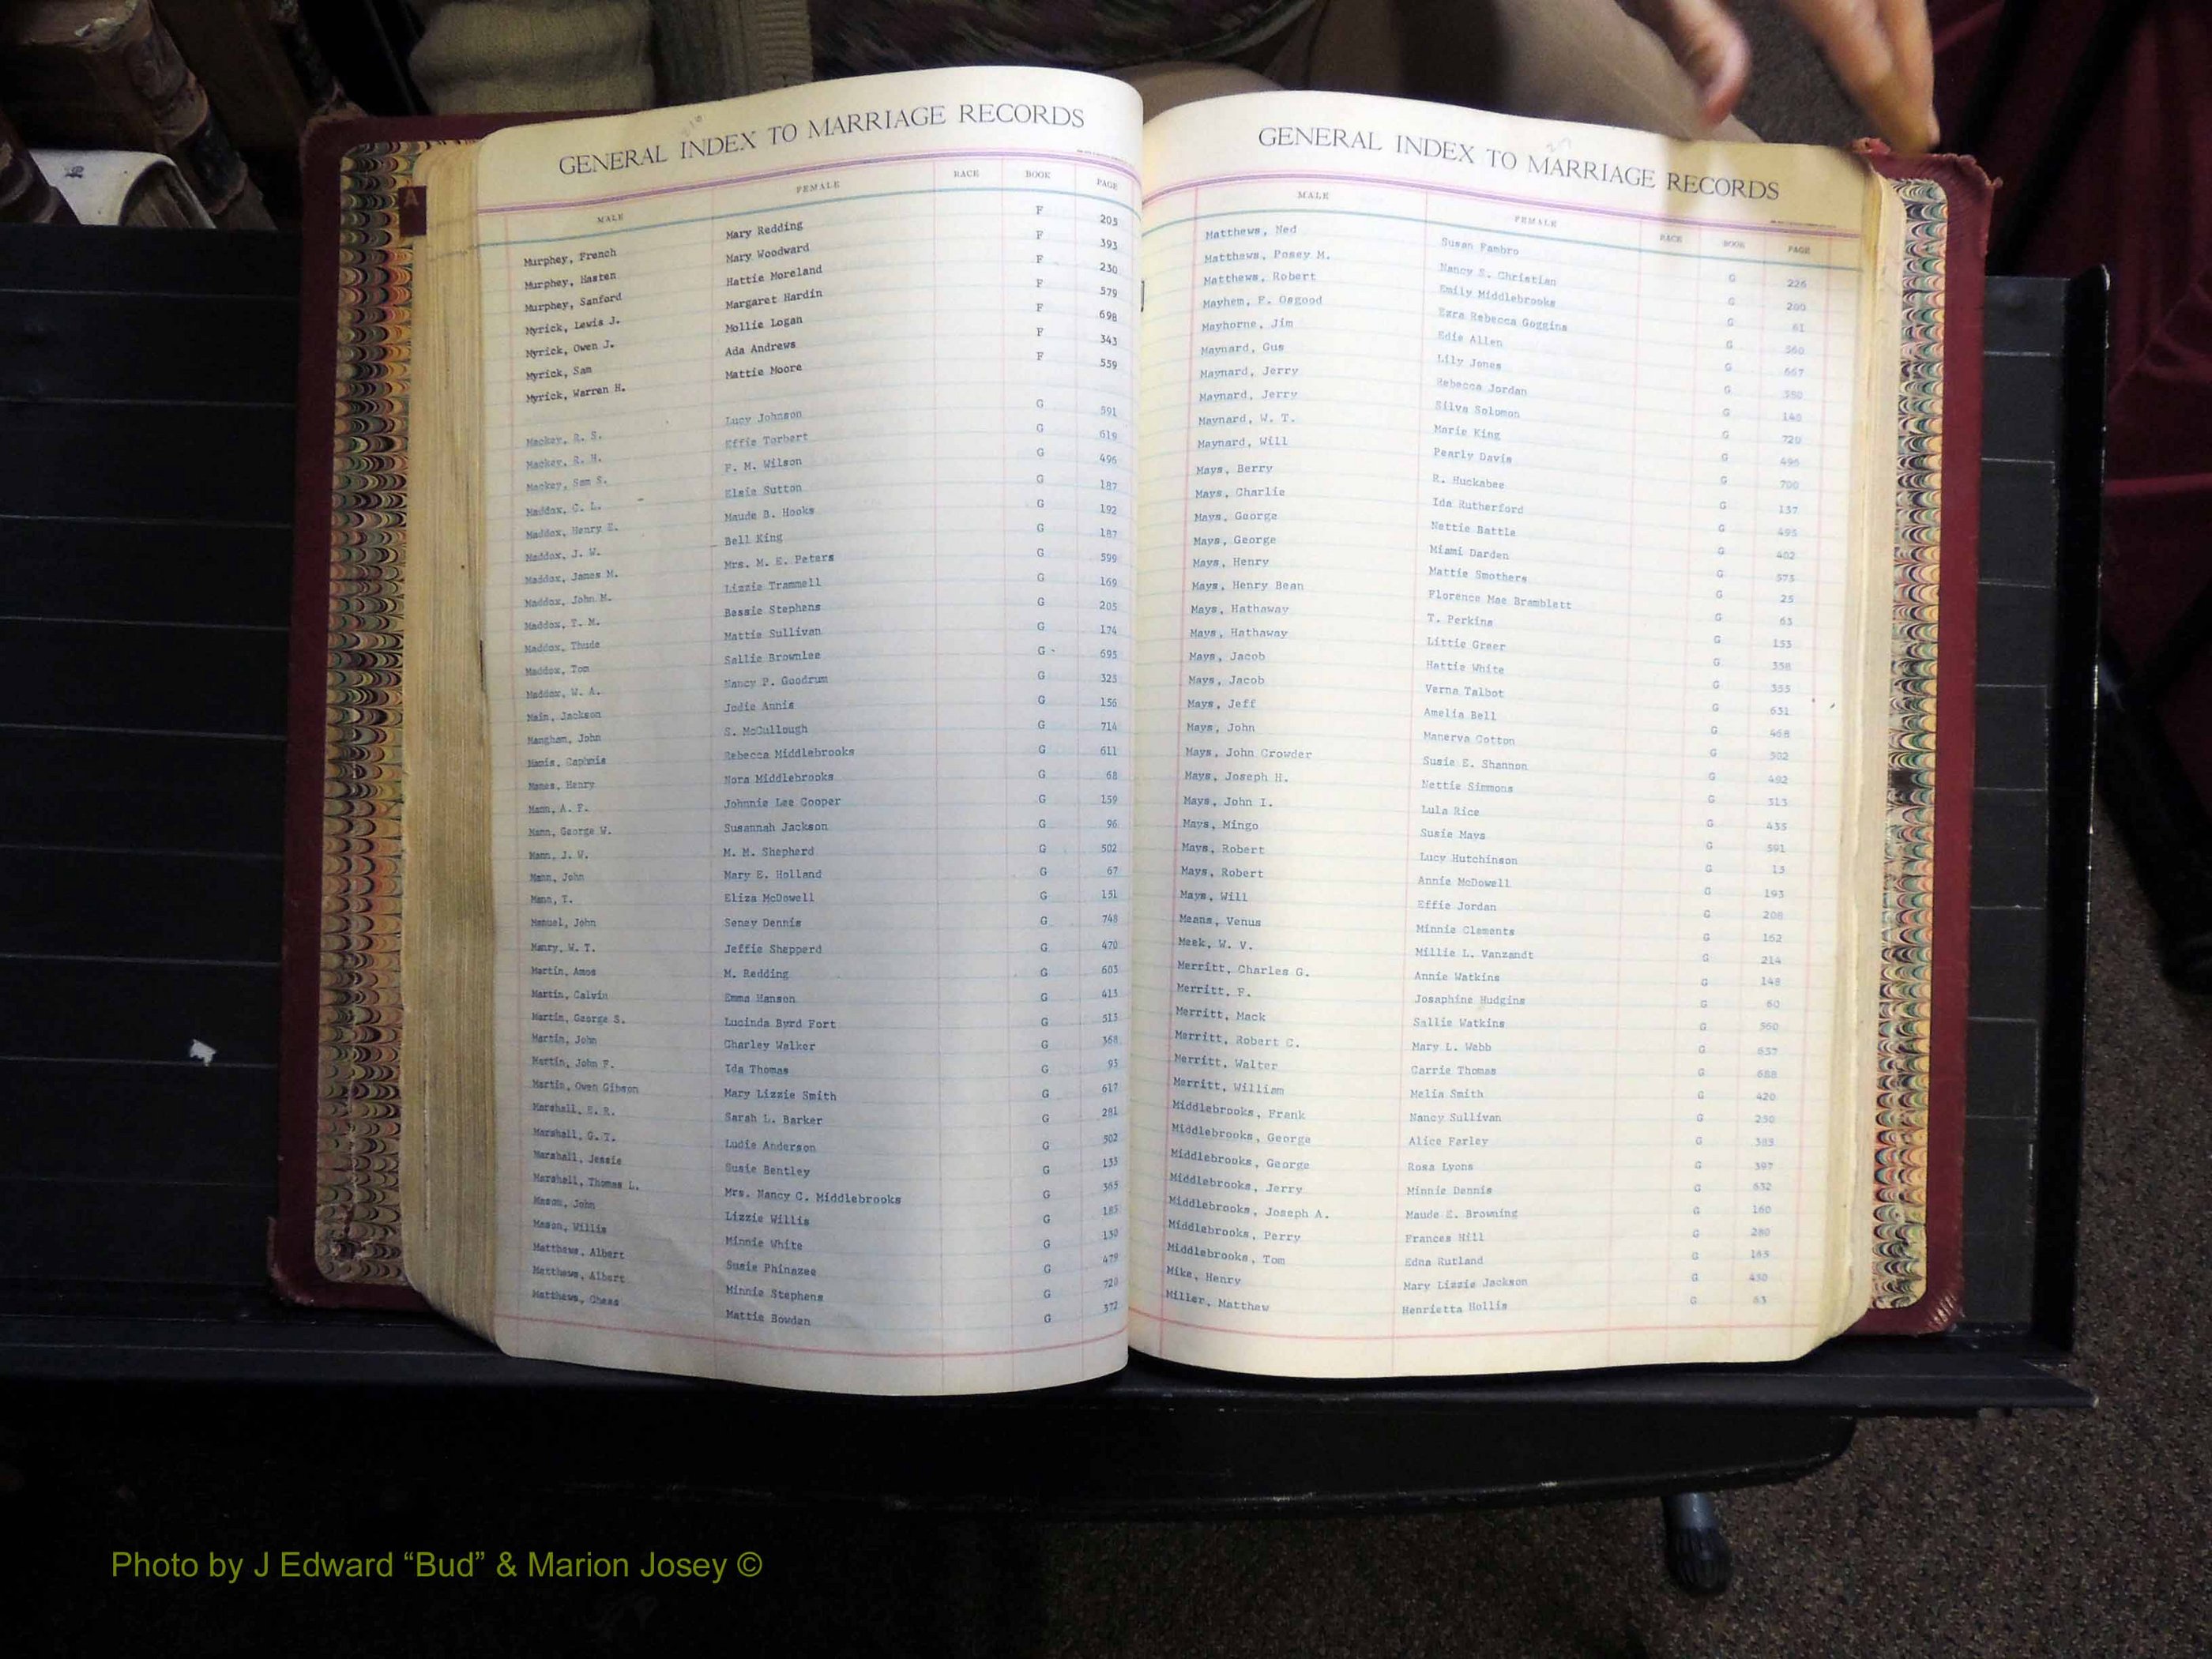 GENERAL INDEX TO MARRIAGE RECORDS
MALE FEMALE RACE BOOK PAGE
Murphey, French Mary Redding F 205
Murphey, Hasten Mary Woodward F 393
Murphey, Sanford Hattie Moreland F 230
Myrick, Lewis J. Margaret Hardin F 579
Myrick, Owen J. Mollie Logan F 698
Myrick, Sam Ada Andrews F 343
Myrick, Warren H. Mattie Moore F 559
Mackey, R. S. Lucy Johnson G 591
Mackey, R. H. Effie Torbert G 619
Mackey, Sam S. F. M. Wilson G 496
Maddox, C. L. Elsie Sutton G 187
Maddox, Henry E. Maude B. Hooks G 192
Maddox, J. W. Bell King G 187
Maddox, James M. Mrs. M. E. Peters G 599
Maddox, John M. Lizzie Trammell G 169
Maddox, T. M. Bessie Stephens G 205
Maddox, Thude Mattie Sullivan G 174
Maddox, Tom Sallie Brownlee G 695
Maddox, W. A. Nancy P. Goodrum G 323
Main, Jackson Jodie Annis G 156
Mangham, John S. McCullough G 714
Manis, Rebecca Middlebrooks G 611
Manes, Henry Nora Middlebrooks G 68
Mann, A. F. Johnnie Lee Cooper G 159
Mann, George W. Susannah Jackson G 96
Mann, J. W. M. M. Shepherd G 502
Mann, John Mary E. Holland G 67
Mann, T. Eliza McDowell G 151
Manuel, John Seney Dennis G 748
Manry, W. T. Jeffie Shepperd G 470
Martin, Amos M. Redding G 603
Martin, Calvin Emma Hanson G 413
Martin, George S. Lucinda Byrd Fort G 513
Martin, John Charley Walker G 368
Martin, John F. Ida Thomas G 95
Martin, Owen Gibson Mary Lizzie Smith G 617
Marshall, E. R. Sarah L. Barker G 281
Marshall, G. T. Ludie Anderson G 502
Marshall, Jessie Susie Bentley G 133
Marshall, Thomas L. Mrs. Nancy C. Middlebrooks G 365
Mason, John Lizzie Willis G 185
Mason, Willis Minnie White G 130
Matthews, Albert Susie Phinazee G 479
Matthews, Albert Minnie Stephens G 720
Matthews, Chess Mattie Bowden G 372
GENERAL INDEX TO MARRIAGE RECORDS
MALE FEMALE RACE BOOK PAGE
Matthews, Ned Susan Fambro G 226
Matthews, Posey M. Nancy S. Christian G 200
Matthews, Robert Emily Middlebrooks G 61
Mayhem, F. Osgood Ezra Rebecca Goggins G 560
Mayhorne, Jim Edie Allen G 667
Maynard, Gus Lily Jones G 380
Maynard, Jerry Rebecca Jordan G 140
Maynard, Jerry Silva Solomon G 720
Maynard, W. T. Marie King G 496
Maynard, Will Pearly Davis G 700
Mays, Berry R. Huckabee G 137
Mays, Charlie Ida Rutherford G 495
Mays, George Nettie Battle G 402
Mays, George Miami Darden G 575
Mays, Henry Mattie Smothers G 25
Mays, Henry Bean Florence Mae Bramblett G 63
Mays, Hathaway T. Perkins G 153
Mays, Hathaway Littie Greer G 358
Mays, Jacob Hattie White G 355
Mays, Jacob Verna Talbot G 631
Mays, Jeff Amelia Bell G 468
Mays, John Manerva Cotton G 502
Mays, John Crowder Susie E. Shannon G 492
Mays, Joseph H. Nettie Simmons G 313
Mays, John I. Lula Rice G 435
Mays, Mingo Susie Mays G 591
Mays, Robert Lucy Hutchinson G 13
Mays, Robert Annie McDowell G 193
Mays, Will Effie Jordan G 208
Means, Venus Minnie Clements G 162
Meek, W. V. Millie L. Vanzandt G 214
Merritt, Charles G. Annie Watkins G 148
Merritt, F. Josaphine Hudgins G 60
Merritt, Mack Sallie Watkins G 560
Merritt, Robert C. Mary L. Webb G 637
Merritt, Walter Carrie Thomas G 688
Merritt, William Melia Smith G 420
Middlebrooks, Frank Nancy Sullivan G 230
Middlebrooks, George Alice Farley G 385
Middlebrooks, George Rosa Lyons G 397
Middlebrooks, Jerry Minnie Dennis G 632
Middlebrooks, Joseph A. Maude E. Browning G 160
Middlebrooks, Perry Frances Hill G 280
Middlebrooks, Tom Edna Rutland G 185
Mike, Henry Mary Lizzie Jackson G 430
Miller, Matthew Henrietta Hollis G 83
Photo by J Edward “Bud” & Marion Josey ©